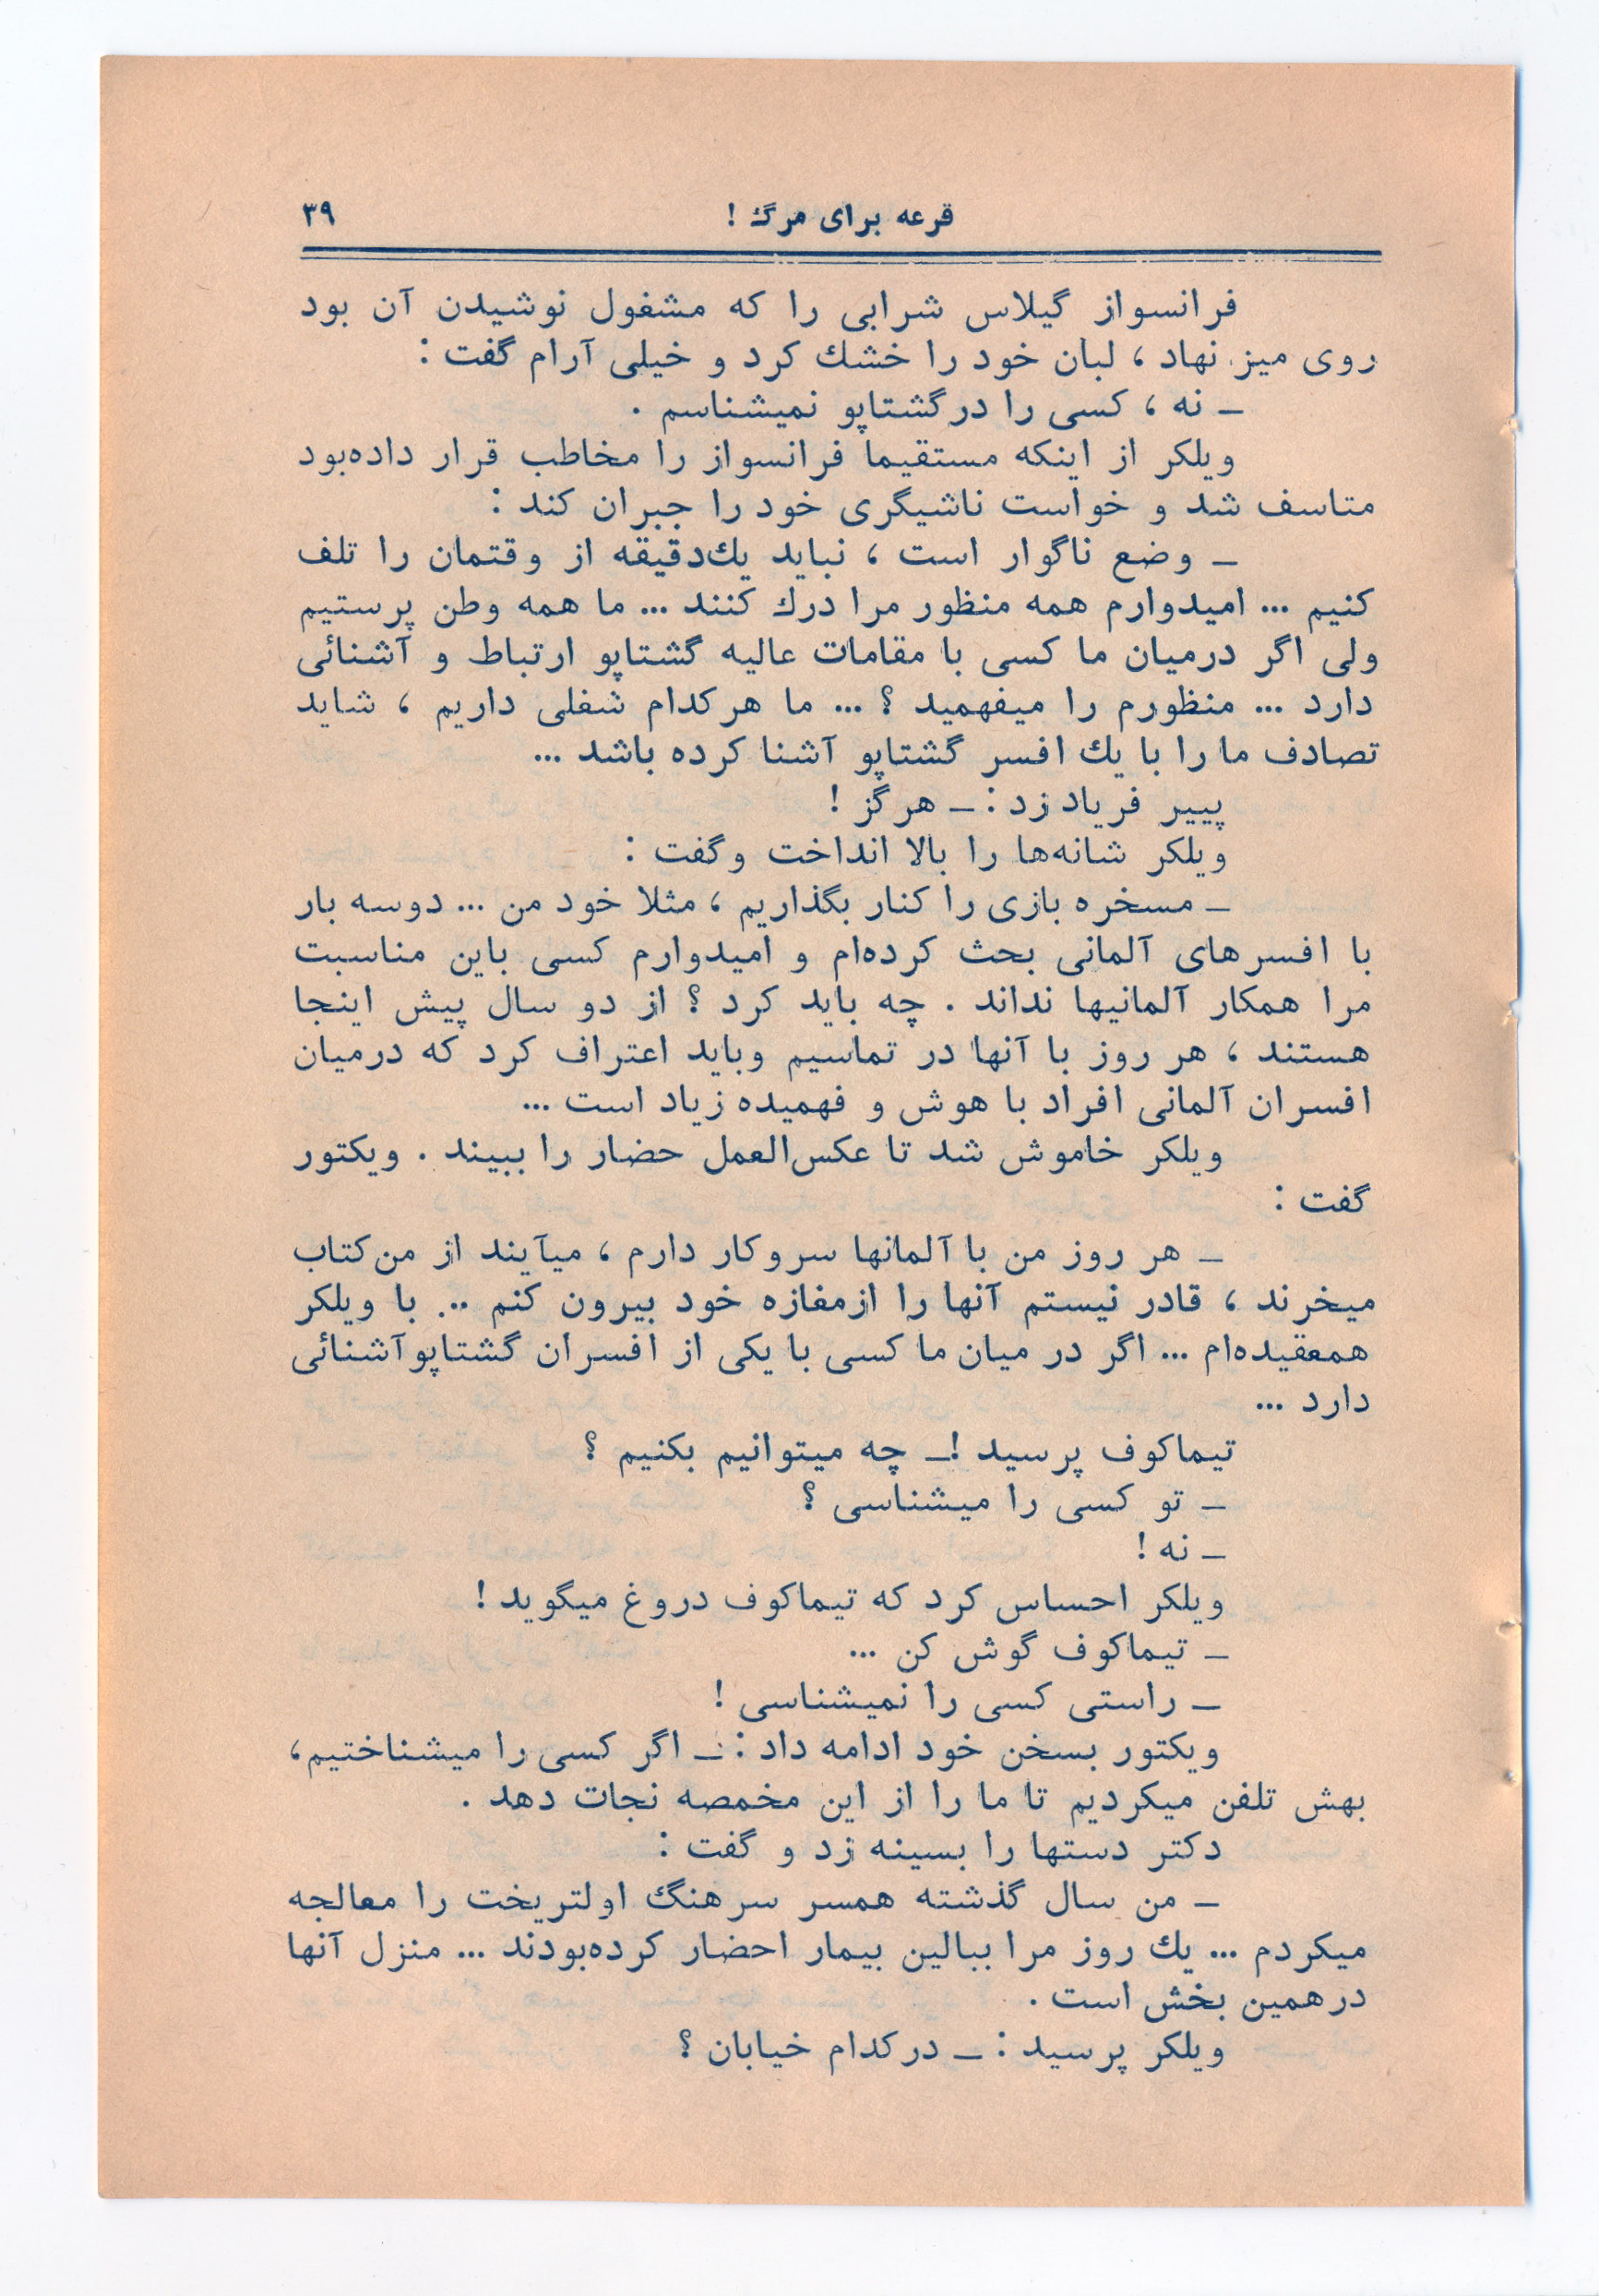 قرعه برای مرگ ! ۳۹
فرانسواز گیلاس شرابی را که مشغول نوشیدن آن بود
روی میز نهاد ، لبان خود را خشك کرد و خیلی آرام گفت :
ـ نه ، کسی را درگشتاپو نمیشناسم .
ویلکر از اینکه مستقیما فرانسواز را مخاطب قرار داده‌بود
متاسف شد و خواست ناشیگری خود را جبران کند :
ـ وضع ناگوار است ، نباید یك‌دقیقه از وقتمان را تلف
کنیم ... امیدوارم همه منظور مرا درك کنند ... ما همه وطن پرستیم
ولی اگر درمیان ما کسی با مقامات عالیه گشتاپو ارتباط و آشنائی
دارد ... منظورم را میفهمید ؟ ... ما هرکدام شغلی داریم ، شاید
تصادف ما را با یك افسر گشتاپو آشنا کرده باشد ...
پییر فریاد زد : ـ هرگز !
ویلکر شانه‌ها را بالا انداخت وگفت :
ـ مسخره بازی را کنار بگذاریم ، مثلا خود من ... دوسه بار
با افسرهای آلمانی بحث کرده‌ام و امیدوارم کسی باین مناسبت
مرا همکار آلمانیها نداند . چه باید کرد ؟ از دو سال پیش اینجا
هستند ، هر روز با آنها در تماسیم وباید اعتراف کرد که درمیان
افسران آلمانی افراد با هوش و فهمیده زیاد است ...
ویلکر خاموش شد تا عکس‌العمل حضار را ببیند . ویکتور
گفت :
ـ هر روز من با آلمانها سروکار دارم ، میآیند از من‌کتاب
میخرند ، قادر نیستم آنها را ازمغازه خود بیرون کنم ... با ویلکر
همعقیده‌ام ... اگر در میان ما کسی با یکی از افسران گشتاپوآشنائی
دارد ...
تیماکوف پرسید !ـ چه میتوانیم بکنیم ؟
ـ تو کسی را میشناسی ؟
ـ نه !
ویلکر احساس کرد که تیماکوف دروغ میگوید !
ـ تیماکوف گوش کن ...
ـ راستی کسی را نمیشناسی !
ویکتور بسخن خود ادامه داد : ـ اگر کسی را میشناختیم،
بهش تلفن میکردیم تا ما را از این مخمصه نجات دهد .
دکتر دستها را بسینه زد و گفت :
ـ من سال گذشته همسر سرهنگ اولتریخت را معالجه
میکردم ... یك روز مرا ببالین بیمار احضار کرده‌بودند ... منزل آنها
درهمین بخش است .
ویلکر پرسید : ـ درکدام خیابان ؟